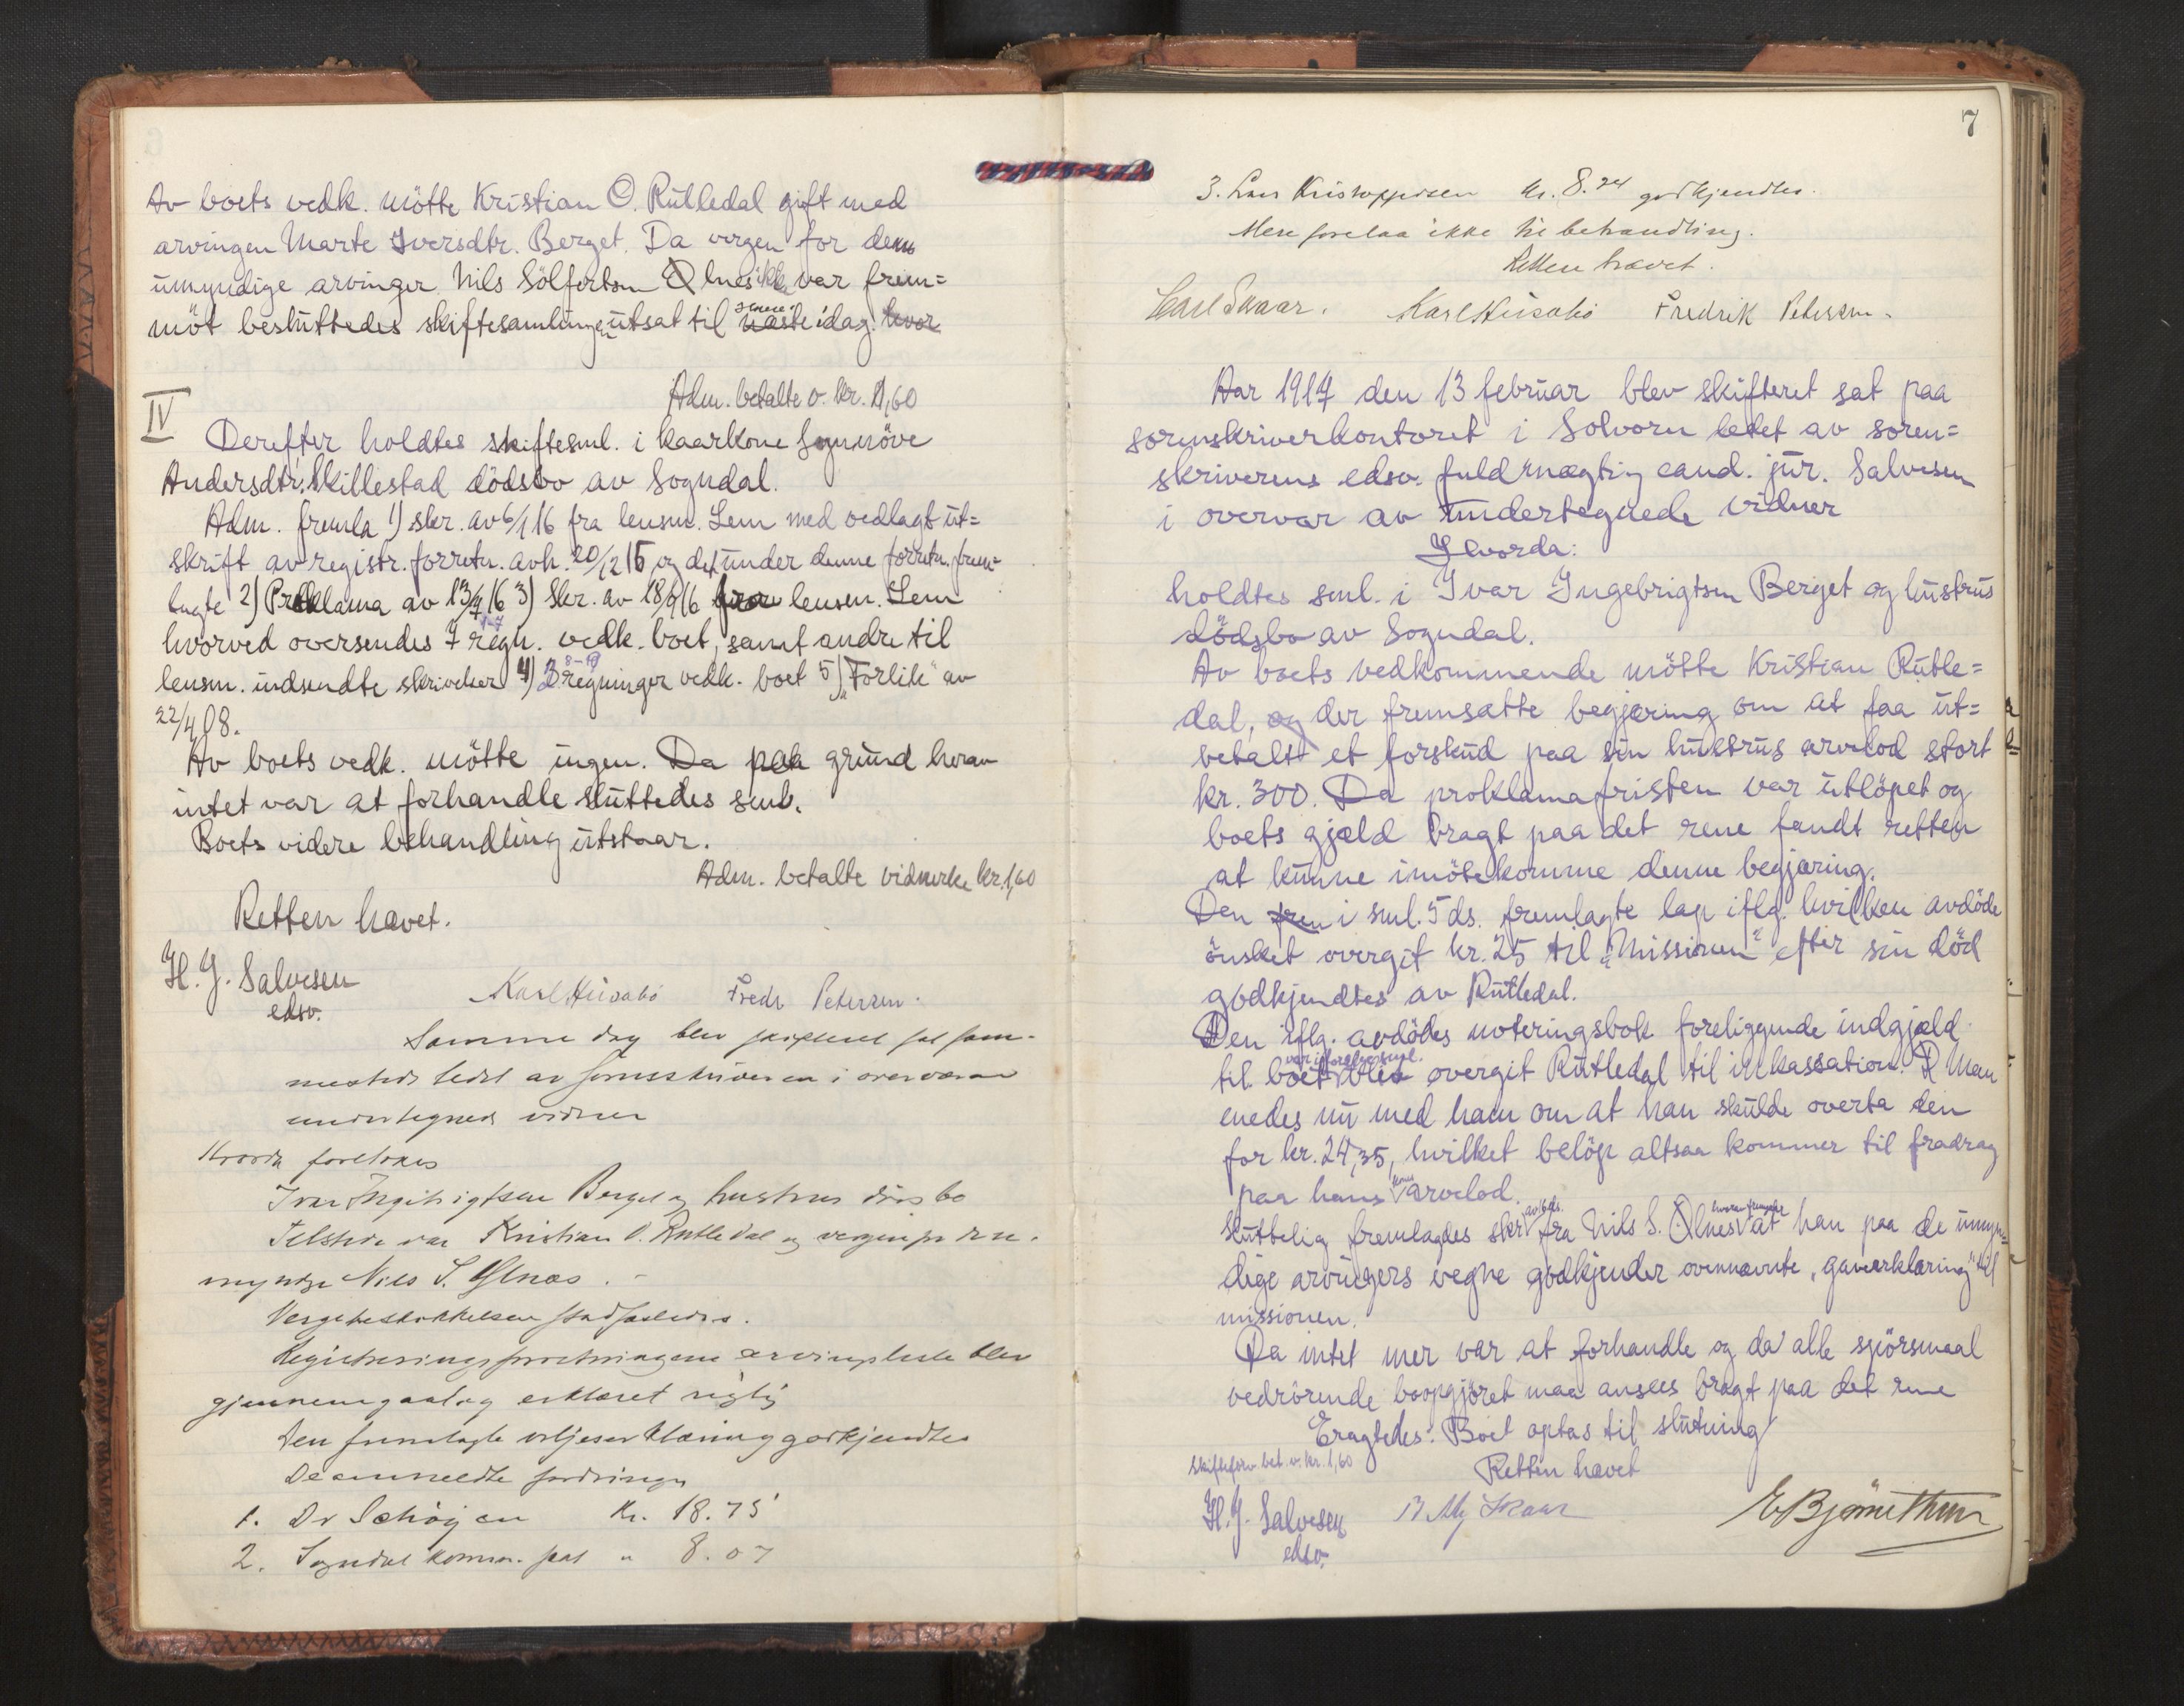 Av boets vedk. mötte Kristian O. Rutledal gift med
arvingen Marte Iversdtr. Berget. Da vergen for dem
umyndige arvinger Nils Sölfertsen Ølnes ikke var frem=
möt besluttedes skiftesamlingen utsat til næste senere idag. hvor
Adm. betalte v. kr. 1,60
IV
Derefter holdtes skiftesml. i kaarkone Synnöve
Andersdtr. Skillestad dödsbo av Sogndal.
Adm. fremla 1) skr. av 6/1 16 fra lensm. Lem med vedlagt ut=
skrift av registr. forretn. avh. 20/12 15 og det under denne forretn. frem=
lagte 2) Proklama av 13/4 16 3) Skr. av 18/9 16 fra lensm. Lem
hvorved oversendes 7 regn. 1-7 vedk. boet, samt andre til
lensm. indsendte skrivelser 4) regninger vedk. boet 5) "Forlik" av
22/4 08.
Av boets vedk. mötte ingen. Da paa grund herav
intet var at forhandle sluttedes sml.
Boets videre behandling utstaar.
Adm. betalte vidnerke kr. 1,60
Retten hævet.
H. J. Salvesen
edsv.
Karl Husabö Fredr Petersen.
Samme dag blev skifteret sat sam-
mesteds ledet av sorenskriveren i overvær av
undertegnede vidner
Hvorda foretokes
Ivar Ingebrigtsen Berget og hustrus dödsbo
Tilstede var Kristian O. Rutledal og vergen for de u-
myndige Nils S. Ølnes.
Vergebeskikkelsen stadfæstedes.
Registreringsforretningens arvingeliste blev
gjennemgaat og erklæret rigtig
Den fremlagte viljeserklæring godkjendtes
De anmeldte fordringer
1. Dr Schöyen Kr. 18.75
2. Sogndal komm. " 8.07
7
3. Lars Kristoffersen kr. 8.24 godkjendtes.
Mere forelaa ikke til behandling.
Retten hævet.
Carl Skaar. Karl Husabö Fredrik Petersen.
Aar 1917 den 13 februar blev skifteret sat paa
sorenskriverkontoret i Solvorn ledet av soren=
skriverens edsv. fuldmægtig cand. jur. Salvesen
i overvær av undertegnede vidner
Hvorda:
holdtes sml. i Ivar Ingebrigtsen Berget og hustrus
dödsbo av Sogndal.
Av boets vedkommende mötte Kristian Rutle=
dal, og der fremsatte begjæring om at faa ut=
betalt et forskud paa sin hustrus arvelod stort
kr. 300. Da proklamafristen var utlöpet og
boets gjæld bragt paa det rene fandt retten
at kunne imötekomme denne begjæring.
Den frem i sml. 5 ds. fremlagte lap iflg. hvilken avdöde
önsket overgit kr. 25 til "Missionen" efter sin död
godkjendtes av Rutledal.
Den iflg. avdödes noteringsbok foreliggende indgjæld
til boet blev var i forrige sml. overgit Rutledal til inkassation. Man
enedes nu med ham om at han skulde overta den
for kr. 24,35, hvilket belöp altsaa kommer til fradrag
paa hans kones arvelod.
Sluttelig fremlagdes skr. av 6 ds. fra Nils S. Ølnes hvorav fremgik at han paa de umyn=
dige arvingers vegne godkjender ovennævnte "gaveerklæring" til
missionen.
Da intet mer var at forhandle og da alle spörsmaal
vedrörende boopgjöret maa ansees bragt paa det rene
Eragtedes: Boet optas til slutning
Skifteforv. bet. v. kr. 1,60
Retten hævet
H. J. Salvesen
edsv.
Skaar
E Bjørnethun